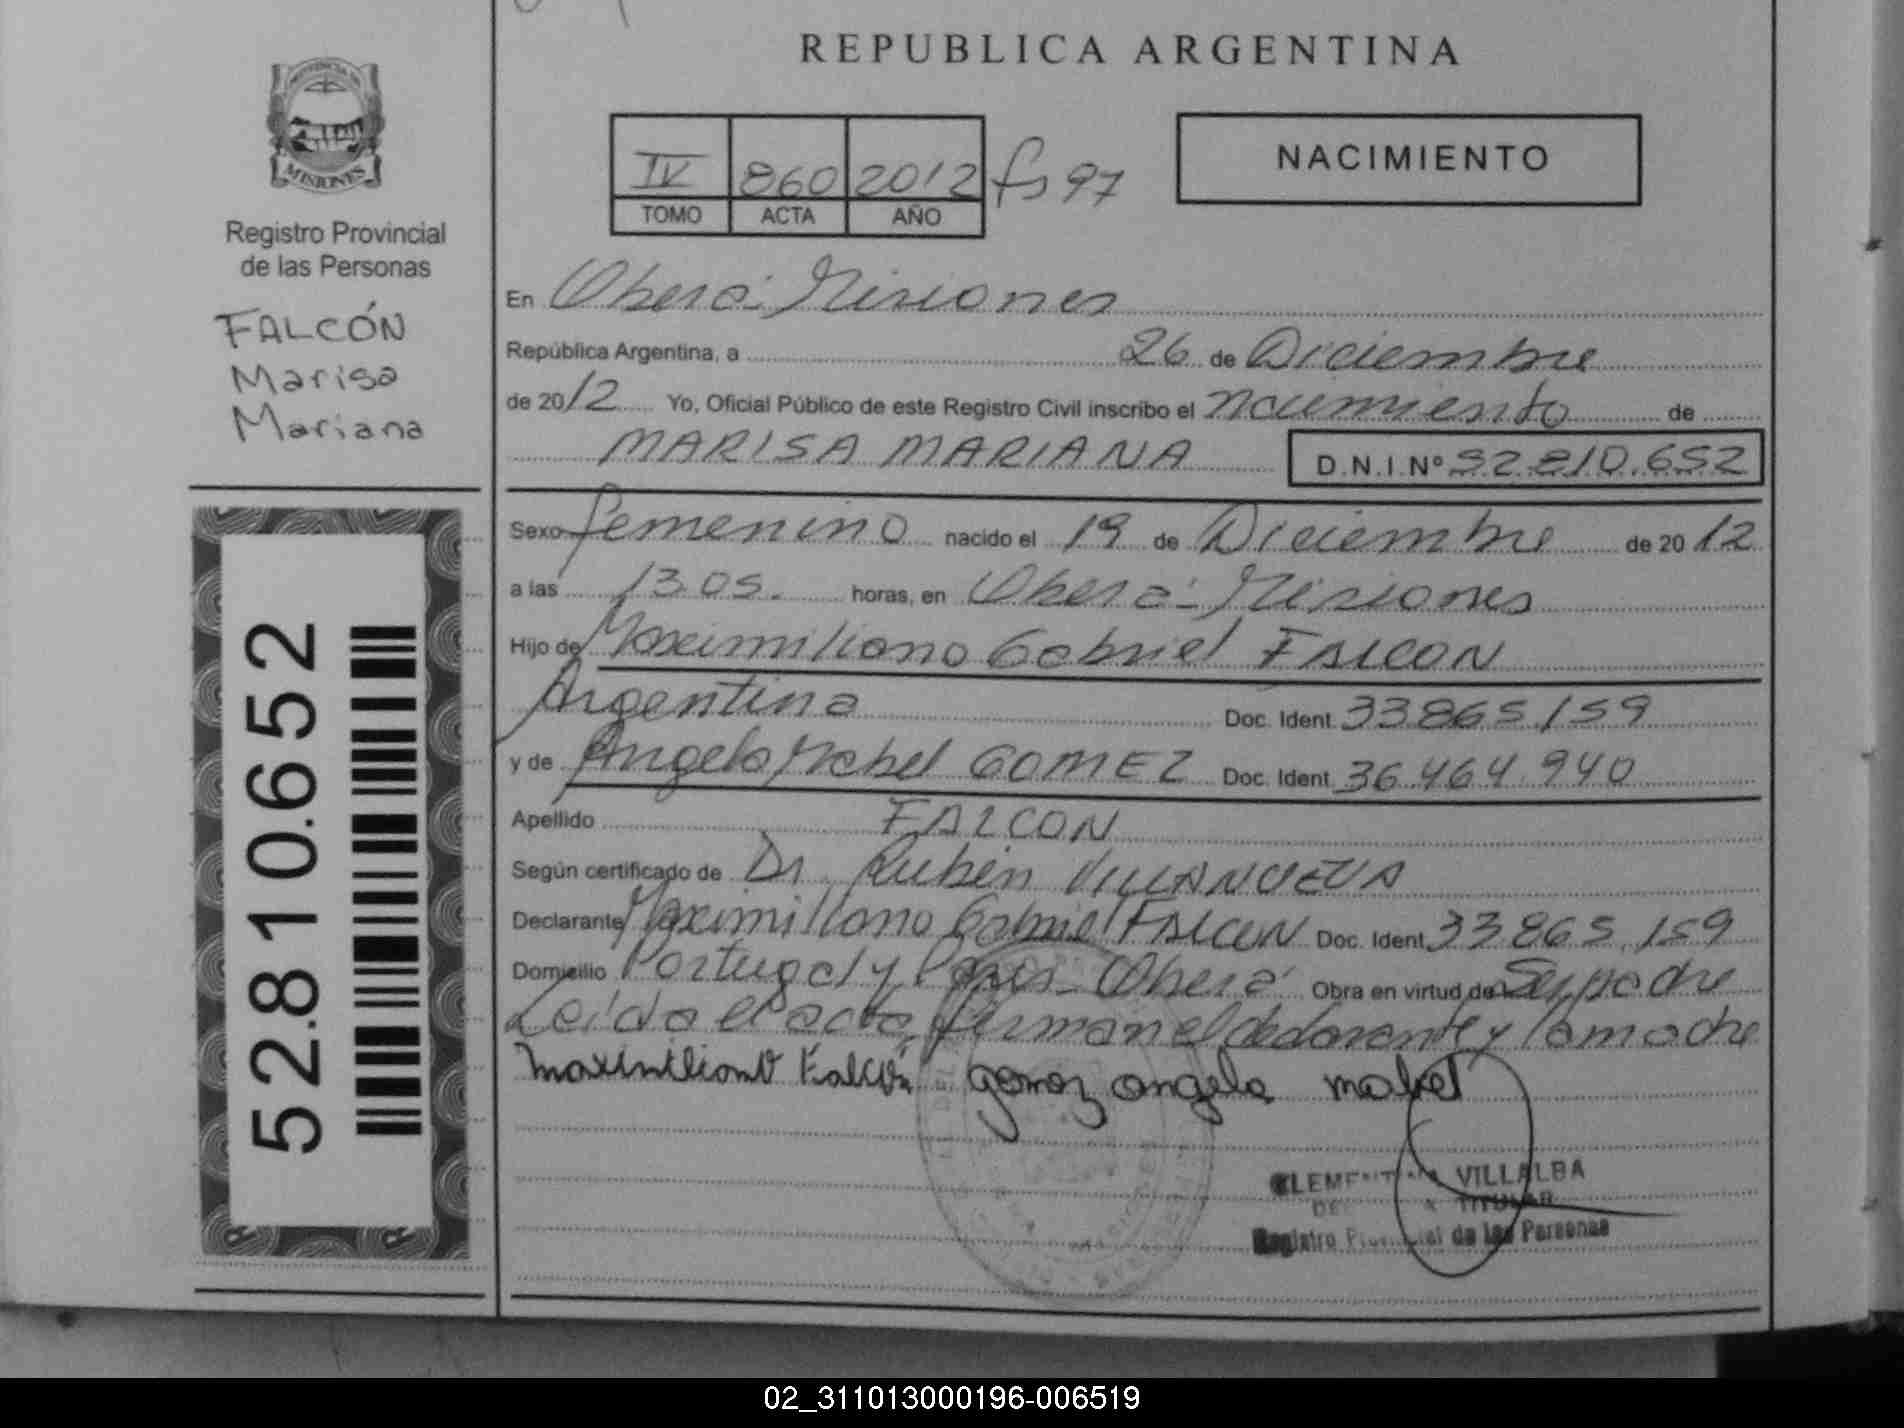 REPUBLICA ARGENTINA
PROVINCIA DE
MISIONES
Registro Provincial
de las Personas
FALCÓN
Marisa
Mariana
52.810.652
IV 860 2012 fs 97
TOMO ACTA AÑO
NACIMIENTO
En Oberá Misiones
República Argentina, a 26 de Diciembre
de 2012 Yo, Oficial Público de este Registro Civil inscribo el nacimiento de
MARISA MARIANA D.N.I Nº 52.810.652
Sexo femenino nacido el 19 de Diciembre de 2012
a las 13.05. horas, en Oberá Misiones
Hijo de Maximiliano Gabriel FALCON
Argentina Doc. Ident. 33865.159
y de Angela Mabel GOMEZ Doc. Ident. 36.464.940
Apellido FALCON
Según certificado de Dr. Rubén VILLANUEVA
Declarante Maximiliano Gabriel FALCON Doc. Ident. 33865.159
Domicilio Portugal y París - Oberá Obra en virtud de Ser padre
Leído el acta, firman el declarante y la madre
maximiliano Falcón gomez angela mabel
CLEMENTINA VILLALBA
TITULAR
Registro Provincial de las Personas
02_311013000196-006519